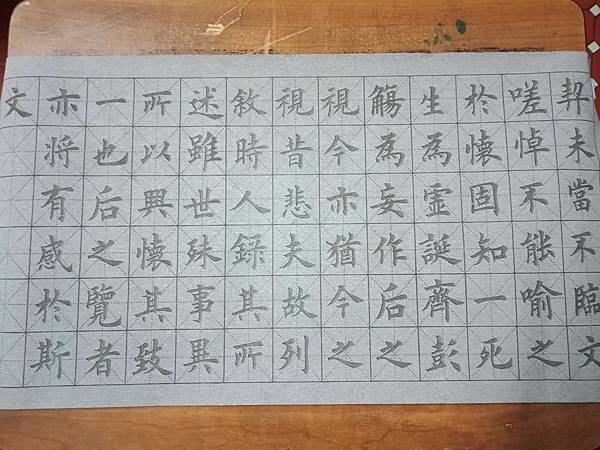 契未當不臨文
嗟悼不能喻之
於懷固知一死
生為虛誕齊彭
觴為妄作后之
視今亦猶今之
視昔悲夫故列
敘時人錄其所
述雖世殊事異
所以興懷其致
一也后之覽者
亦將有感於斯
文